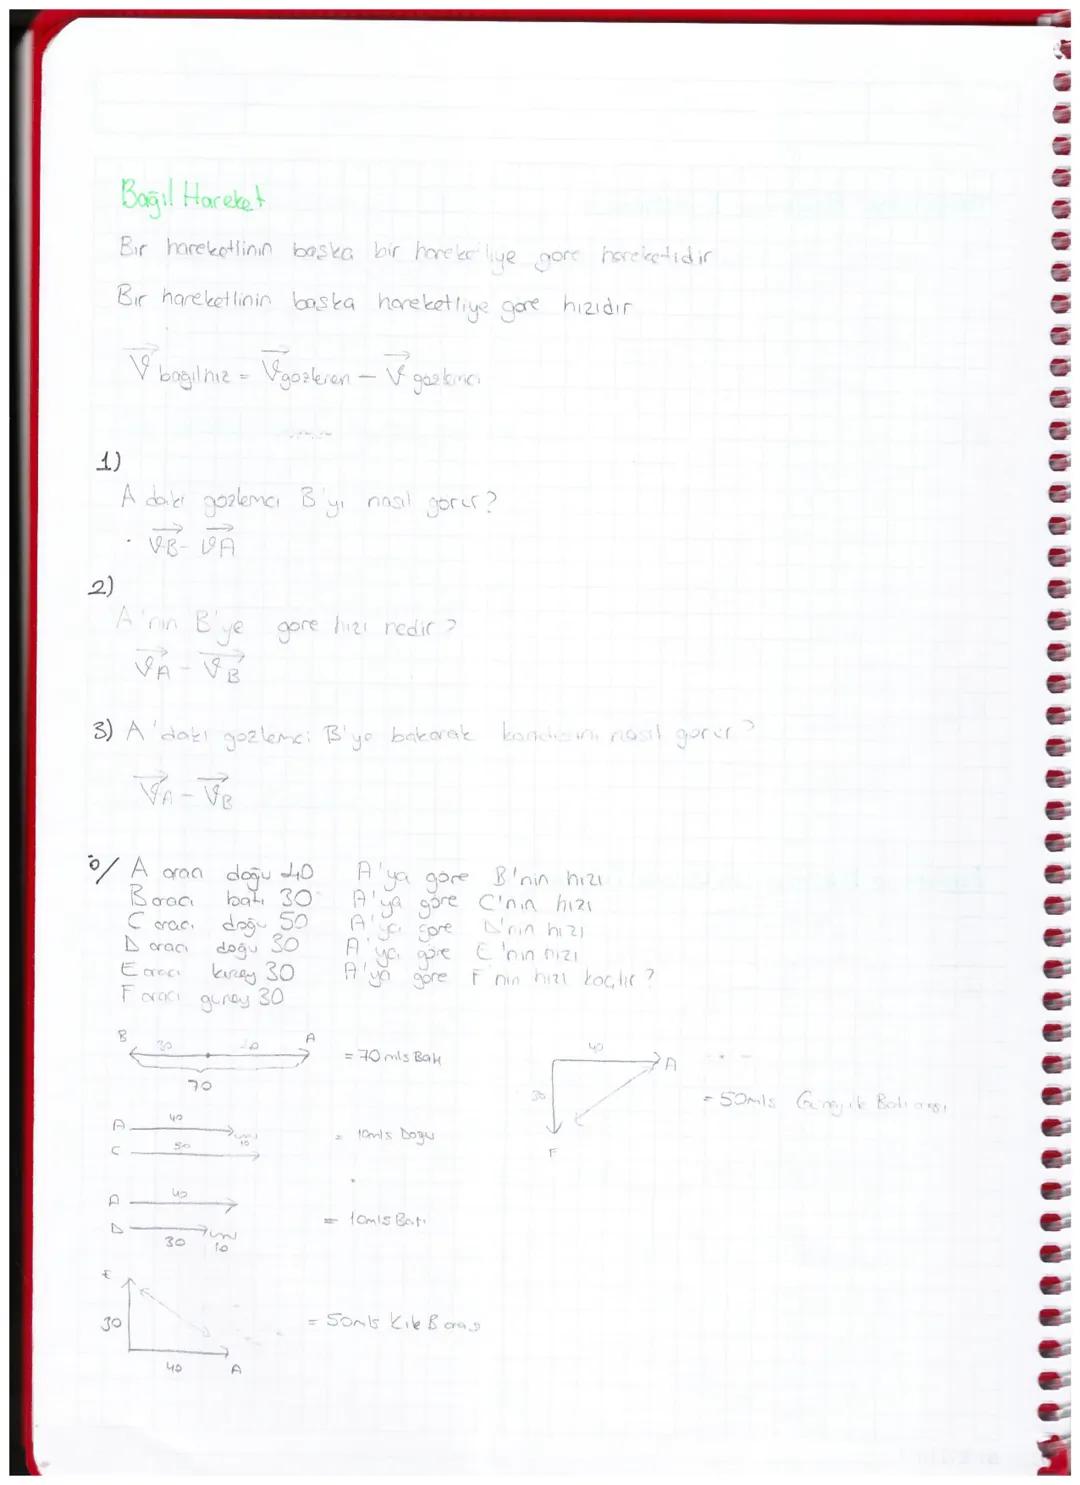 Bağıl Hareket
Bir hareketlinin başka bir hareketliye göre hareketidir
Bir hareketlinin başka hareketliye göre hızıdır
V bağılhız = Vgözlenen - V gözlemci
1)
A daki gözlemci B'yi nasıl görür?
· VB - VA
2)
A'nın B'ye göre hızı nedir?
VA - VB
3) A'daki gözlemci B'ye bakarak kendisini nasıl görür?
VA - VB
Ö/ A aracı doğu 40 A'ya göre B'nin hızı
B aracı batı 30 A'ya göre C'nin hızı
C aracı doğu 50 A'ya göre D'nin hızı
D aracı doğu 30 A'ya göre E'nin hızı
E aracı kuzey 30 A'ya göre F'nin hızı kaçtır?
F aracı güney 30
B 30 40 A
70
= 70 m/s Batı
A 40
C 50 10
= 10m/s Doğu
A 40
D 30 10
= 10m/s Batı
E
30
40 A
= 50m/s K ile B arası
40
A
30
F
= 50m/s Güney ile Batı arası